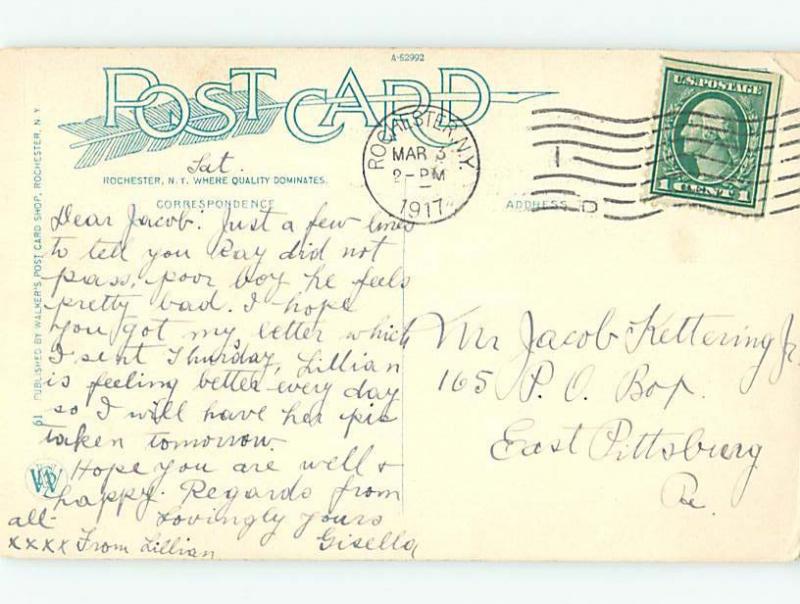 A-52992
POST CARD
Sat.
ROCHESTER, N. Y. WHERE QUALITY DOMINATES.
CORRESPONDENCE
ADDRESS
ROCHESTER, N.Y.
MAR 3
2-PM
1917
U.S. POSTAGE
1 CENT 1
D
61 PUBLISHED BY WALKER'S POST CARD SHOP, ROCHESTER, N. Y.
Dear Jacob: Just a few lines
to tell you Ray did not
pass, poor boy he feels
pretty bad. I hope
you got my letter which
I sent Thurday, Lillian
is feeling better every day
so I will have her pic
taken tomorrow.
Hope you are well &
happy. Regards from
all- Lovingly yours
xxxx From Lillian Gisella
Mr Jacob Kettering Jr.
165 P. O. Box.
East Pittsburg
Pa.